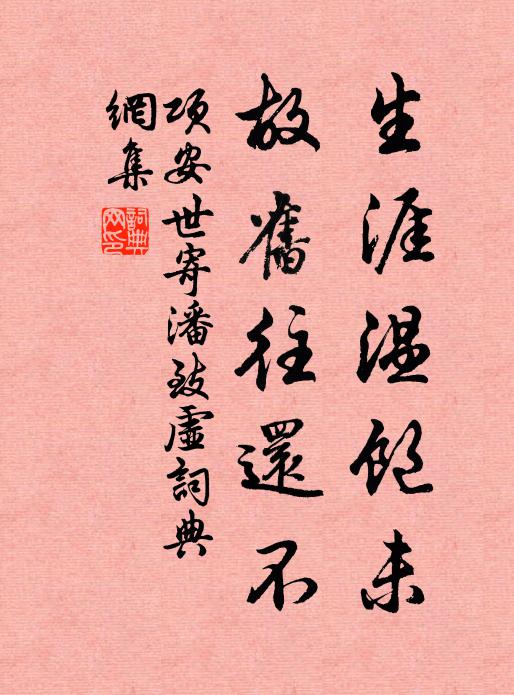 生涯溫飽未
故舊往還不
項安世寄潘致虛詞典
網集
詞典
網印